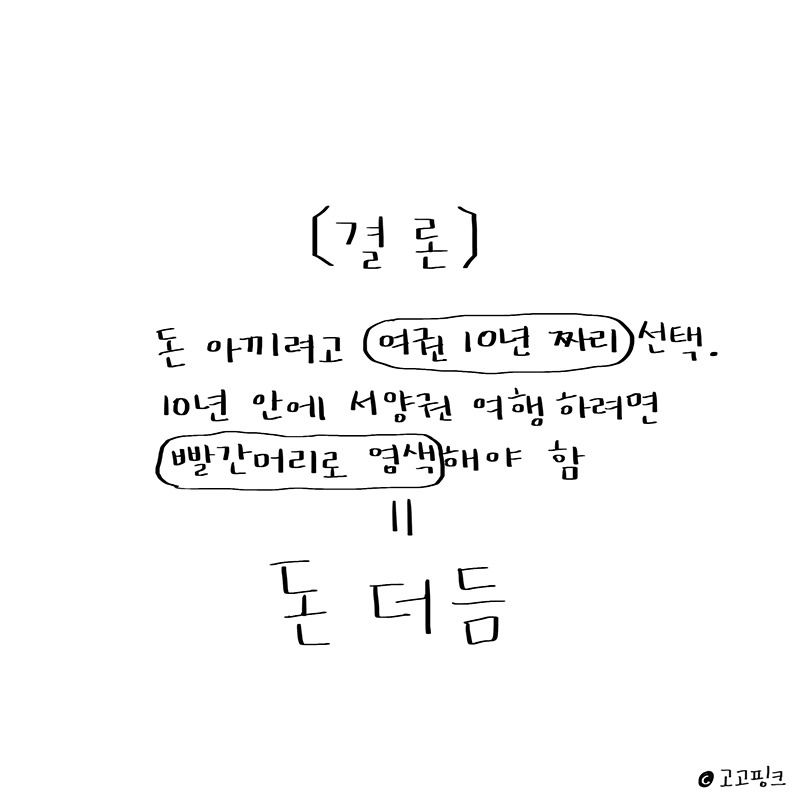 (결론)
돈 아끼려고 여권 10년 짜리 선택.
10년 안에 서양권 여행하려면
빨간머리로 염색해야 함
=
돈 더듬
© 고고핑크